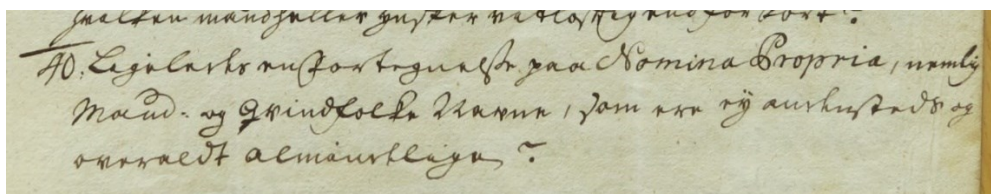 hvilken mand heller ynsker
40. Ligeledes en Fortegnelse paa Nomina Propria, nemlig
Mand- og Qvindfolke Navne, som ere ej andensteds og
overaldt almindelige?